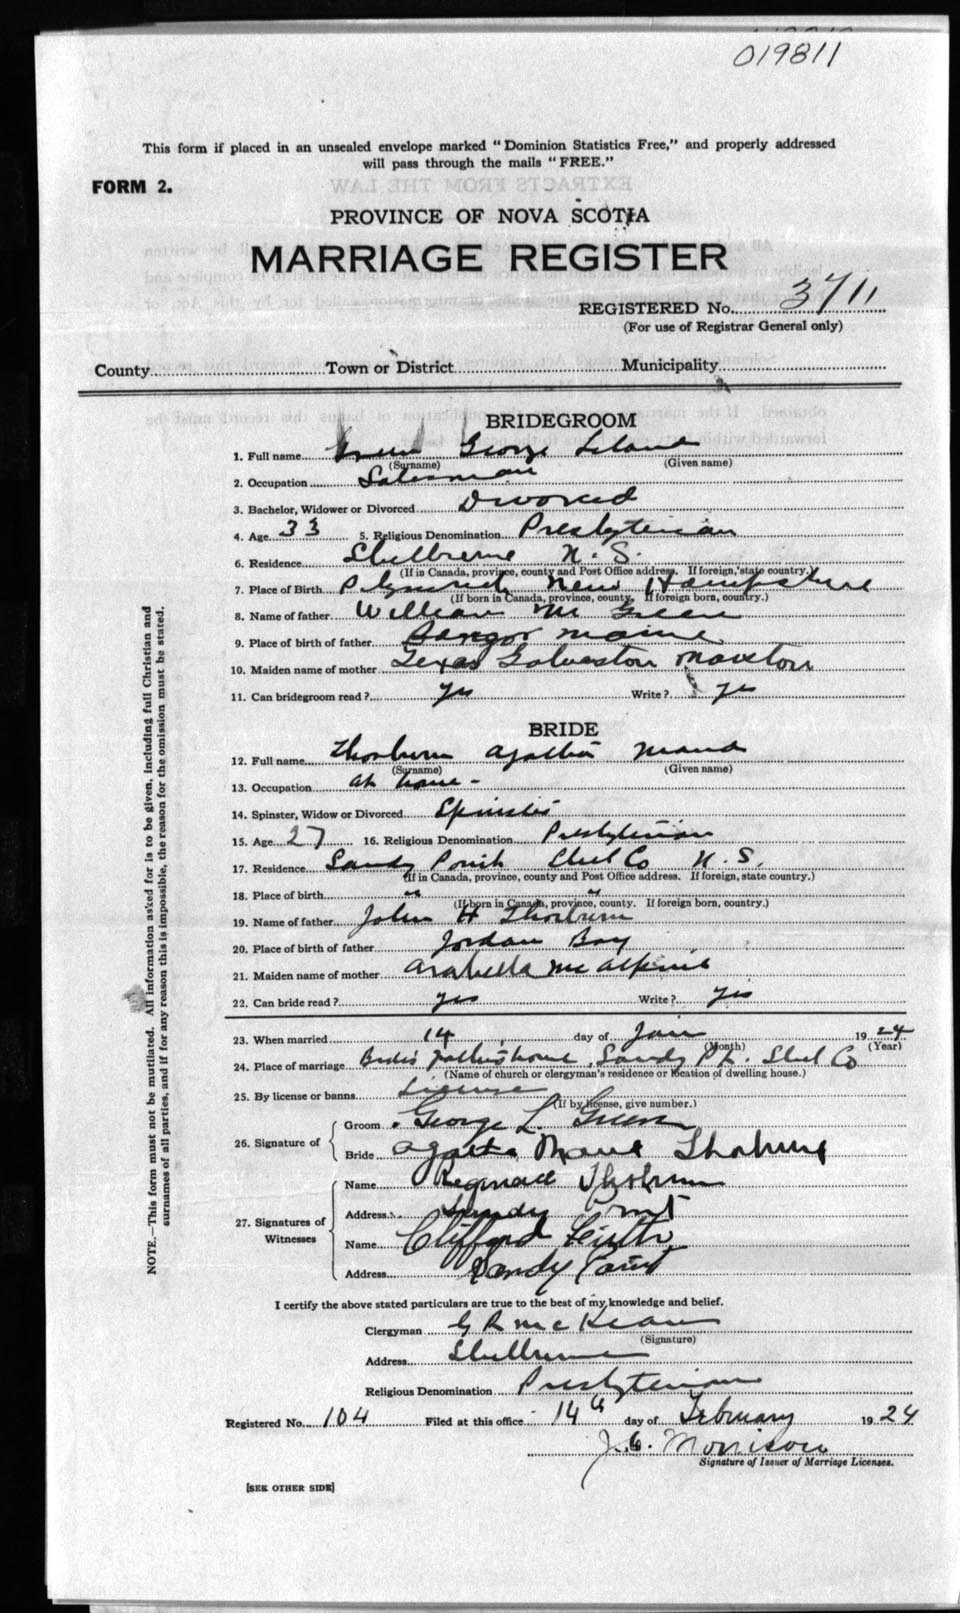 019811
This form if placed in an unsealed envelope marked "Dominion Statistics Free," and properly addressed
will pass through the mails "FREE."
FORM 2.
PROVINCE OF NOVA SCOTIA
MARRIAGE REGISTER
REGISTERED No. 3711
(For use of Registrar General only)
County Town or District Municipality
BRIDEGROOM
1. Full name Green George Leland
(Surname) (Given name)
2. Occupation Salesman
3. Bachelor, Widower or Divorced Divorced
4. Age 33 5. Religious Denomination Presbyterian
6. Residence Shelburne N. S.
(If in Canada, province, county and Post Office address. If foreign, state country.)
7. Place of Birth Plymouth New Hampshire
(If born in Canada, province, county. If foreign born, country.)
8. Name of father William M Green
9. Place of birth of father Bangor Maine
10. Maiden name of mother Texas Galveston
11. Can bridegroom read? yes Write? yes
BRIDE
12. Full name Thorburn Agatha Maud
(Surname) (Given name)
13. Occupation at home -
14. Spinster, Widow or Divorced Spinster
15. Age 27 16. Religious Denomination Presbyterian
17. Residence Sandy Point Shel Co N. S.
(If in Canada, province, county and Post Office address. If foreign, state country.)
18. Place of birth " "
(If born in Canada, province, county. If foreign born, country.)
19. Name of father John H Thorburn
20. Place of birth of father Jordan Bay
21. Maiden name of mother Arabella McAlpine
22. Can bride read? yes Write? yes
23. When married 14 day of Jan 1924
(Month) (Year)
24. Place of marriage Brides Fathers home, Sandy Pt. Shel Co
(Name of church or clergyman's residence or location of dwelling house.)
25. By license or banns License
(If by license, give number.)
26. Signature of
Groom George L. Green
Bride Agatha Maud Thorburn
27. Signatures of Witnesses
Name Reginald Thorburn
Address Sandy Point
Name Clifford
Address Sandy Point
I certify the above stated particulars are true to the best of my knowledge and belief.
Clergyman G R McKean
(Signature)
Address Shelburne
Religious Denomination Presbyterian
Registered No. 104 Filed at this office 14 day of February 1924
J. C. Morrison
Signature of Issuer of Marriage Licenses.
[SEE OTHER SIDE]
NOTE.—This form must not be mutilated. All information asked for is to be given, including full Christian and
surnames of all parties, and if for any reason this is impossible, the reason for the omission must be stated.